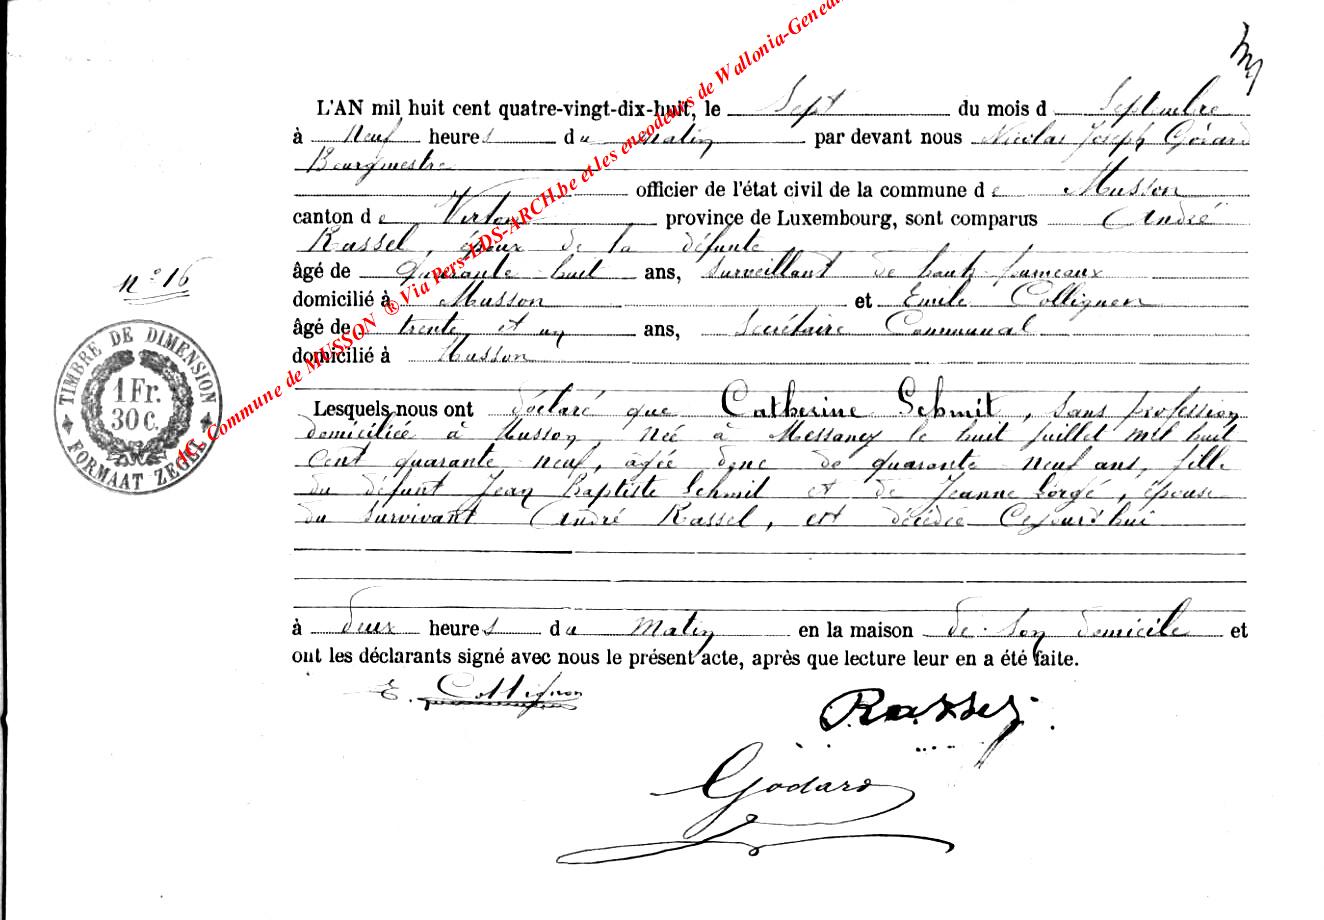 L'AN mil huit cent quatre-vingt-dix-huit, le Sept du mois d Septembre
à neuf heures du matin par devant nous Nicolas Joseph Godard
Bourgmestre
officier de l'état civil de la commune de Musson
canton de Virton province de Luxembourg, sont comparus André
Rassel, époux de la défunte
n° 16
âgé de Quarante-huit ans, surveillant de hauts-fourneaux
domicilié à Musson et Emile Collignon
âgé de trente et un ans, Secrétaire Communal
domicilié à Musson
TIMBRE DE DIMENSION
1 Fr.
30 C.
FORMAAT ZEGEL
AC Commune de MUSSON ® Via Pers-LDS-ARCH.be et les encodeurs de Wallonia-Genea
Lesquels nous ont déclaré que Catherine Schmit, sans profession
domiciliée à Musson, née à Messancy le huit juillet mil huit
cent quarante-neuf, âgée donc de quarante-neuf ans, fille
du défunt Jean Baptiste Schmit et de Jeanne Lorgé, épouse
du survivant André Rassel, est décédée cejourd'hui
à deux heures du matin en la maison de son domicile et
ont les déclarants signé avec nous le présent acte, après que lecture leur en a été faite.
E. Collignon
Rassel
Godard